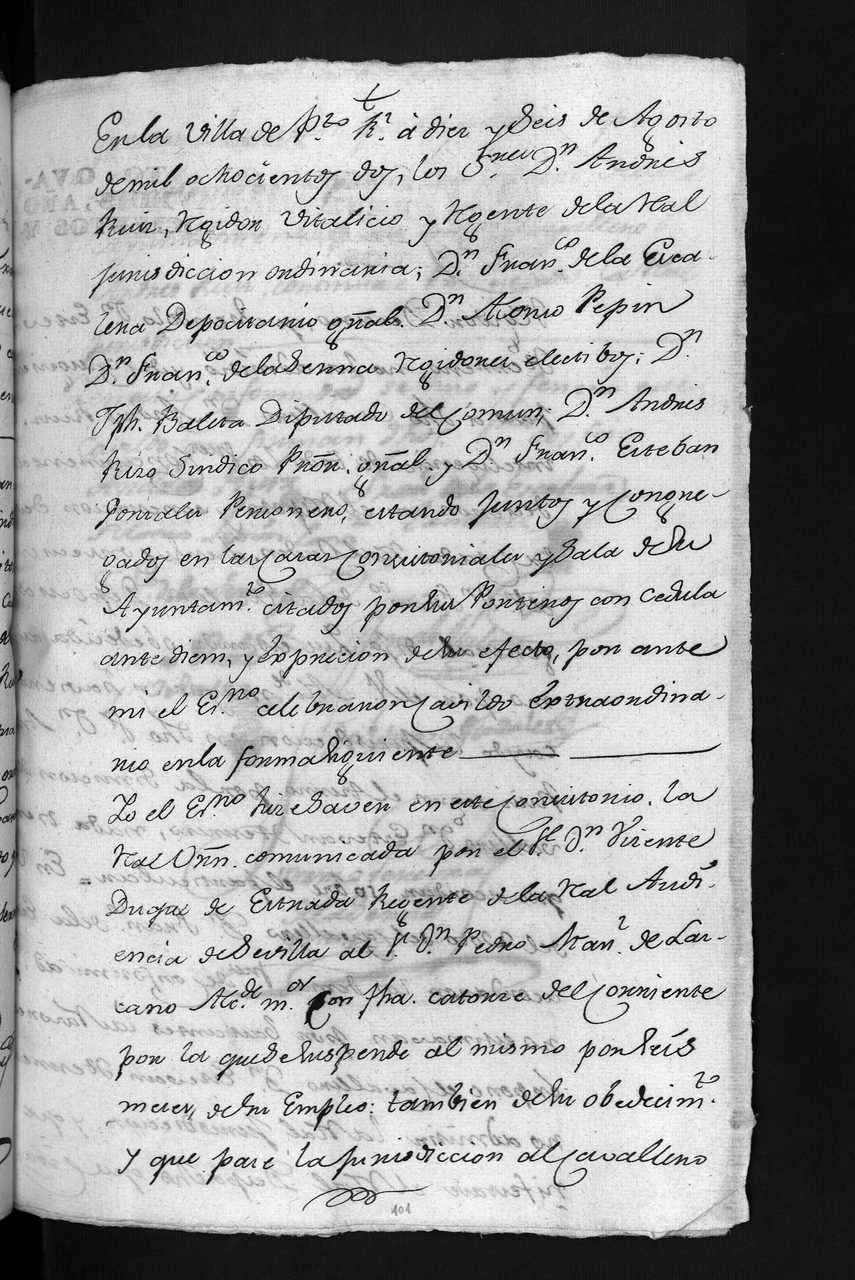 En la Villa de Pto. Rl. à diez y seis de Agosto
de mil ochocientos dos, los Sres. Dn. Andres
Ruiz, Rejidor Vitalicio y Rgente de la Real
jurisdiccion ordinaria; Dn. Franco. de la Esca-
lena Depocitario gñal. Dn. Alonso Pepin
Dn. Franco. de la Serna Regidores electibos; Dn.
Jph. Baleta Diputado del Comun; Dn. Andres
Rizo Sindico Prõr. gñal. y Dn. Franco. Esteban
Gonzales Personero, estando juntos y Congre-
gados en las Casas Consistoriales y Sala de su
Ayuntamto. citados por sus Porteros con cedula
ante diem, y Exprecion de su efecto, por ante
mi el Esno. celebraron Cavildo Extraordina-
rio en la forma siguiente
Yo el Esno. hize saver en este Concistorio. la
Real Orñ. comunicada por el Sr. Dn. Vicente
Duque de Estrada Regente de la Real Audi-
encia de Sevilla al Sr. Dn. Pedro Manl. de Laz-
cano Alcde. mor. Con fha. catorze del Corriente
por la que se suspende al mismo por seis
meses, de su Empleo: tambien de su obedecimto.
y que pase la jurisdiccion al Cavallero
101